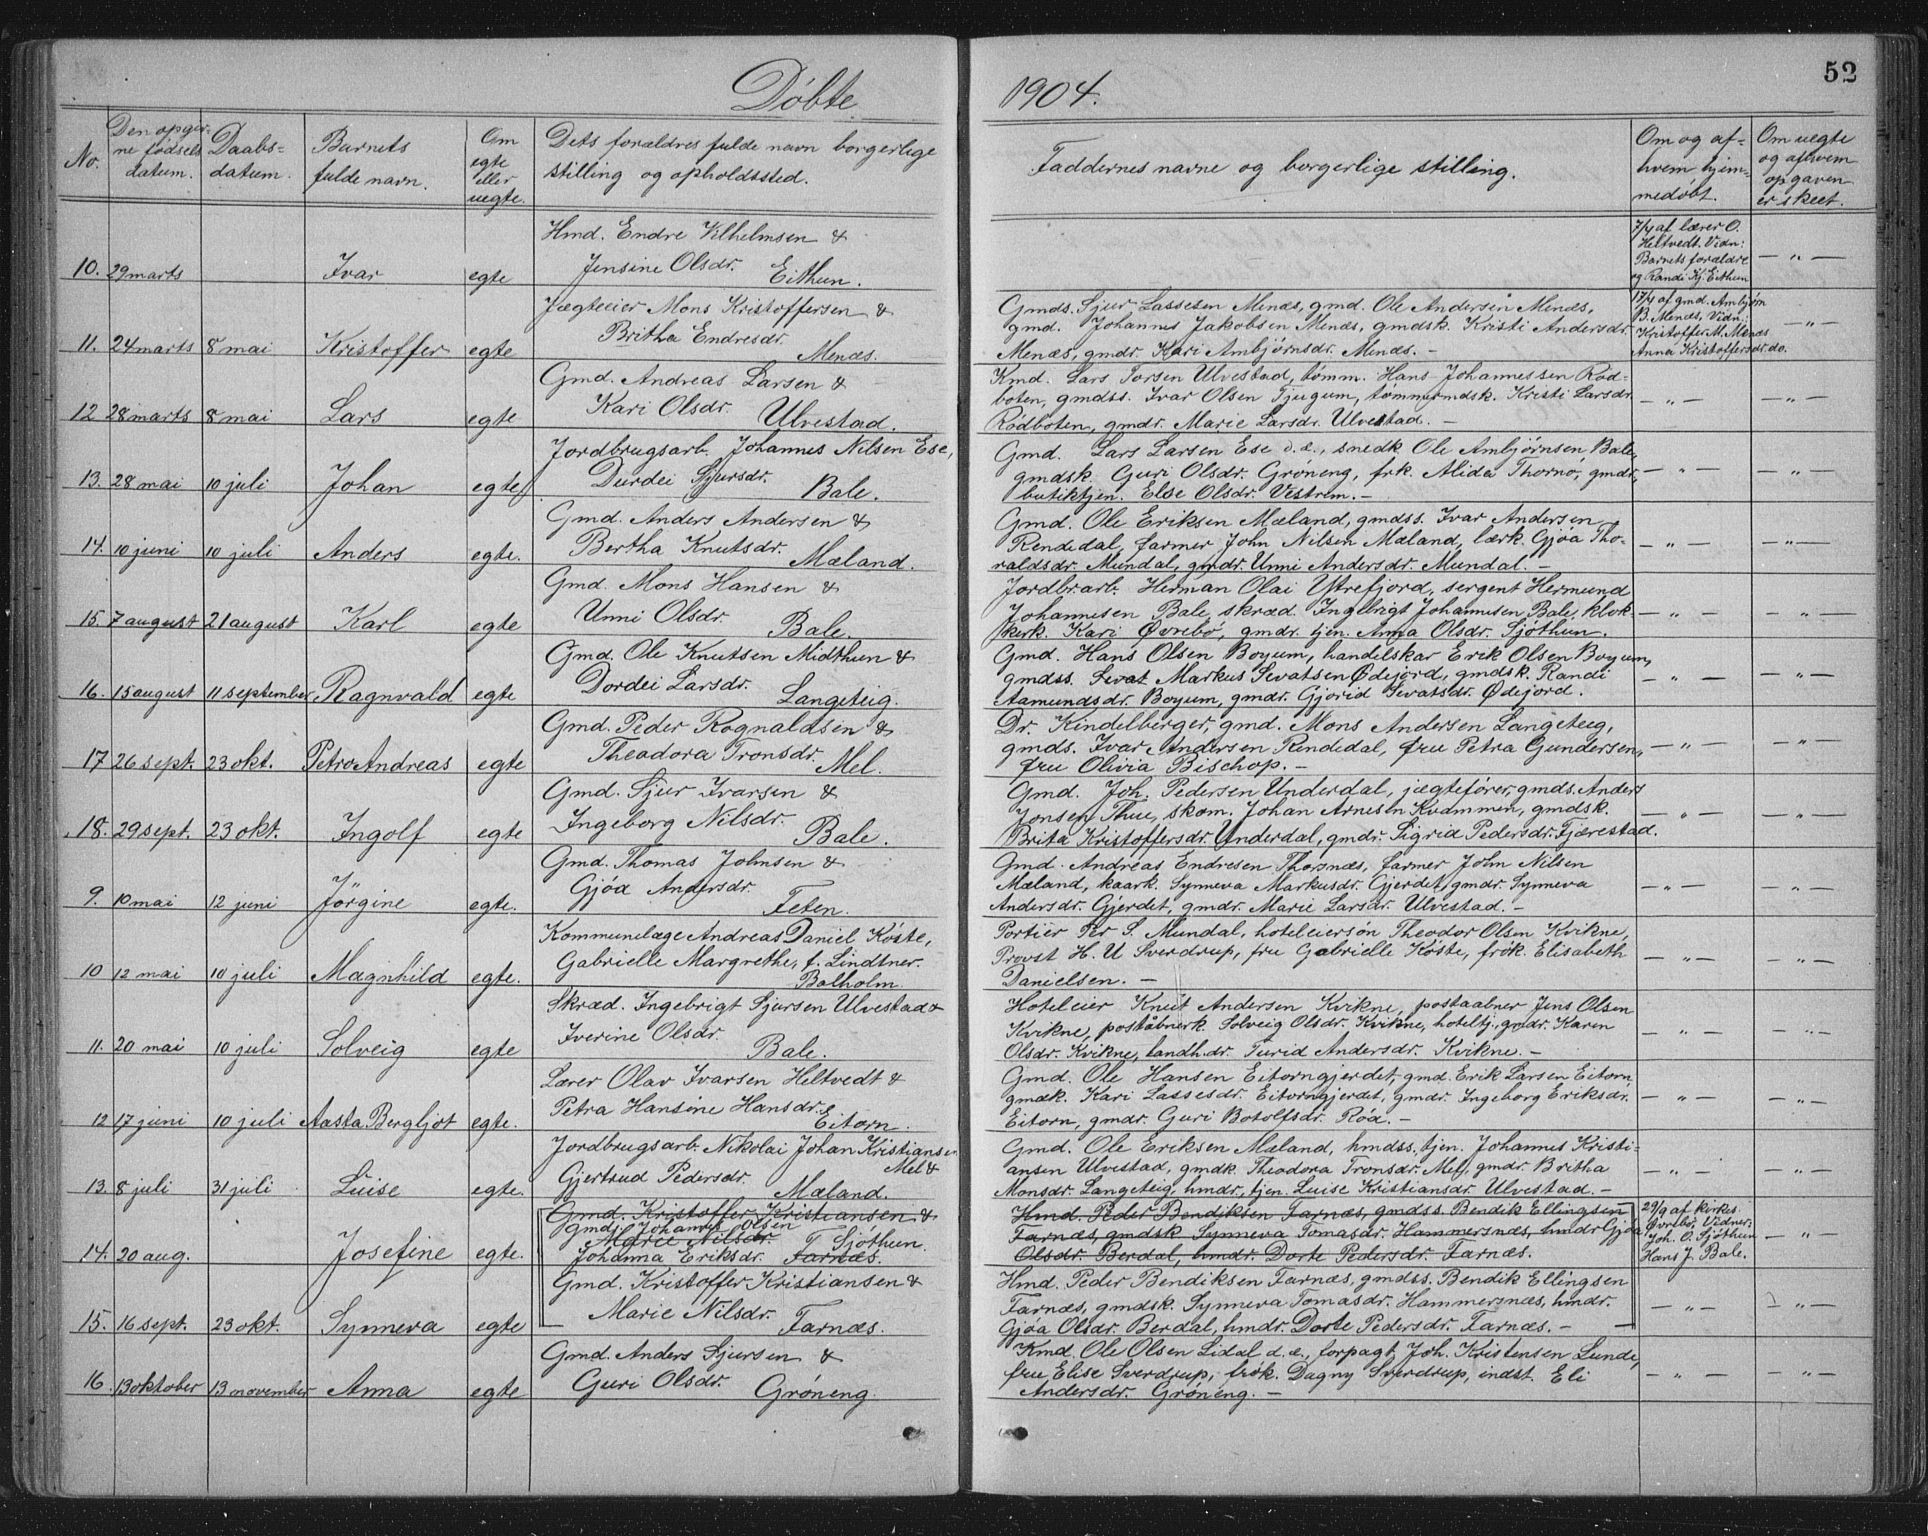 Döbte
1904.
52
No.
Den opgiv-
ne fødsels
datum.
Daabs-
datum.
Barnets
fulde navn.
Om
egte
eller
uegte.
Dets forældres fulde navn borgerlige
stilling og opholdssted.
Faddernes navne og borgerlige stilling.
Om og af-
hvem hjem-
medøbt.
Om uegte
og afhvem
opgaven
er skeet.
Hmd. Endre Vilhelmsen &
10. 29 marts Ivar egte Jensine Olsdr. Eithun.
7/4 af lærer O.
Heltvedt. Vidn:
Barnets forældre
og Randi Kj. Eithun
— „ —
Jægteeier Mons Kristoffersen &
11. 24 marts 8 mai Kristoffer egte Britha Endresdr. Menæs.
Gmds. Sjur Lassesen Menæs, gmd. Ole Andersen Menæs,
gmd. Johannes Jakobsen Menæs, gmdsk. Kristi Andersdr.
Menæs, gmdr. Kari Ambjørnsdr. Menæs. —
17/4 af gmd. Ambjørn
B. Menæs, Vidn:
Kristoffer M. Menæs
Anna Kristoffersdr. do.
— „ —
Gmd. Andreas Larsen &
12 28 marts 8 mai Lars egte Kari Olsdr. Ulvestad.
Kmd. Lars Torsen Ulvestad, tømm. Hans Johannessen Rød-
boten, gmdss. Ivar Olsen Tjugum, tømmermdsk. Kristi Larsdr.
Rødboten, gmdr. Marie Larsdr. Ulvestad. —
— „ — — „ —
Jordbrugsarb. Johannes Nilsen Ese,
13. 28 mai 10 juli Johan egte Durdei Sjursdr. Bale.
Gmd. Lars Larsen Ese d.æ., snedk Ole Ambjørnsen Bale,
gmdsk. Guri Olsdr. Grøneng, frk. Alida Thorne, gmdr.
butiktjen. Else Olsdr. Vestrem. —
— „ — — „ —
Gmd. Anders Andersen &
14. 10 juni 10 juli Anders egte. Bertha Knutsdr. Mæland.
Gmd. Ole Eriksen Mæland, gmdss. Ivar Andersen
Rendedal, farmer John Nilsen Mæland, lærk. Gjøa Tho-
raldsdr. Mundal, gmdr. Unni Andersdr. Mundal. —
— „ — — „ —
Gmd. Mons Hansen &
15. 7 august 21 august Karl egte Unni Olsdr. Bale.
Jordbr.arb. Herman Olai Yttrefjord, sergent Hermund
Johannesen Bale, skræd. Ingebrigt Johannesen Bale, klok-
kerk. Kari Øvrebø, gmdr. tjen. Anna Olsdr. Sjøthun.
— „ — — „ —
Gmd. Ole Knutsen Midthun &
16. 15 august 11 september Ragnvald egte Dordei Larsdr. Langeteig.
Gmd. Hans Olsen Boyum, handelskar Erik Olsen Boyum,
gmdss. Sevat Markus Sevatsen Ødejord, gmdsk. Randi
Aamundsdr. Boyum, gmdr. Gjorid Sevatsdr. Ødejord.
— „ — — „ —
Gmd. Peder Rognaldsen &
17 26 sept. 23 okt. Petro Andreas egte Theodora Tronsdr. Mel.
Dr. Kindelberger, gmd. Mons Andersen Langeteig,
gmds. Ivar Andersen Rendedal, fru Petra Gundersen,
fru Olivia Bischop. —
— „ — — „ —
Gmd. Sjur Ivarsen &
18. 29 sept. 23 okt. Ingolf egte Ingeborg Nilsdr. Bale.
Gmd. Joh. Pedersen Underdal, jægtefører, gmds. Anders
Jonsen Thue, skom. Johan Arnesen Kvammen, gmdsk.
Brita Kristoffersdr. Underdal, gmdr. Sigrid Pedersdr. Fjærestad.
— „ — — „ —
Gmd. Thomas Johnsen &
9. 10 mai 12 juni Jørgine egte. Gjøa Andersdr. Feten.
Gmd. Andreas Endresen Thorsnæs, farmer John Nilsen
Mæland, kaark. Synneva Markusdr. Gjerdet, gmdr. Synneva
Andersdr. Gjerdet, gmdr. Marie Larsdr. Ulvestad. —
— „ — — „ —
Kommunelæge Andreas Daniel Køste,
10 12 mai 10 juli Magnhild egte. Gabrielle Margrethe, f. Lindtner.
Balholm.
Portier Per S. Mundal, hoteleiersøn Theodor Olsen Kvikne,
Provst H. U Sverdrup, fru Gabrielle Køste, frøk. Elisabeth
Danielsen. —
— „ — — „ —
Skræd. Ingebrigt Sjursen Ulvestad &
11. 20 mai 10 juli Solveig egte Iverine Olsdr. Bale.
Hoteleier Knut Andersen Kvikne, postaabner Jens Olsen
Kvikne, poståbnerk. Solveig Olsdr. Kvikne, hoteltj. gmdr. Karen
Olsdr. Kvikne, landh.dr. Turid Andersdr. Kvikne. —
— „ — — „ —
Lærer Olav Ivarsen Heltvedt &
12 17 juni 10 juli Aasta Bergljot egte. Petra Hansine Hansdr. Eitorn.
Gmd. Ole Hansen Eitorngjerdet, gmd. Erik Larsen Eitorn,
gmdk. Kari Lassesdr. Eitorngjerdet, gmdr. Ingeborg Eriksdr.
Eitorn, gmdr. Guri Botolfsdr. Røa. —
— „ — — „ —
Jordbrugsarb. Nikolai Johan Kristiansen
Mel &
13. 8 juli 31 juli Luise egte. Gjertrud Pedersdr. Mæland.
Gmd. Ole Eriksen Mæland, hmdss. tjen. Johannes Kristi-
ansen Ulvestad, gmdk. Theodora Tronsdr. Mel, gmdr. Britha
Monsdr. Langeteig, hmdr. tjen. Luise Kristiansdr. Ulvestad. —
— „ — — „ —
Gmd. Kristoffer Kristiansen &
gmd. Johannes Olsen
Marie Nilsdr. Sjøthun.
14. 20 aug. Josefine egte. Johanna Eriksdr. Farnæs.
Hmd. Peder Bendiksen Farnæs, gmdss. Bendik Ellingsen
Farnæs, gmdsk Synneva Tomasdr. Hammersnæs, hmdr Gjøa
Olsdr. Berdal, hmdr. Dorte Pedersdr. Farnæs.
29/9 af kirkes.
Øvrebø, Vidner:
Joh. O. Sjøthun
Hans J. Bale.
— „ —
Gmd. Kristoffer Kristiansen &
15. 16 sept. 23 okt. Synneva egte Marie Nilsdr. Farnæs.
Hmd. Peder Bendiksen Farnæs, gmdss. Bendik Ellingsen
Farnæs, gmdsk. Synneva Tomasdr. Hammersnæs, hmdr.
Gjøa Olsdr. Berdal, hmdr. Dorte Pedersdr. Farnæs. —
— „ — — „ —
Gmd. Anders Sjursen &
16. 13 oktober 13 november Anna egte Guri Olsdr. Grøneng.
Kmd. Ole Olsen Lidal d.æ., forpagt. Joh. Kristensen Lunde,
fru Elise Sverdrup, frøk. Dagny Sverdrup, indst. Eli
Andersdr. Grøneng. —
— „ — — „ —